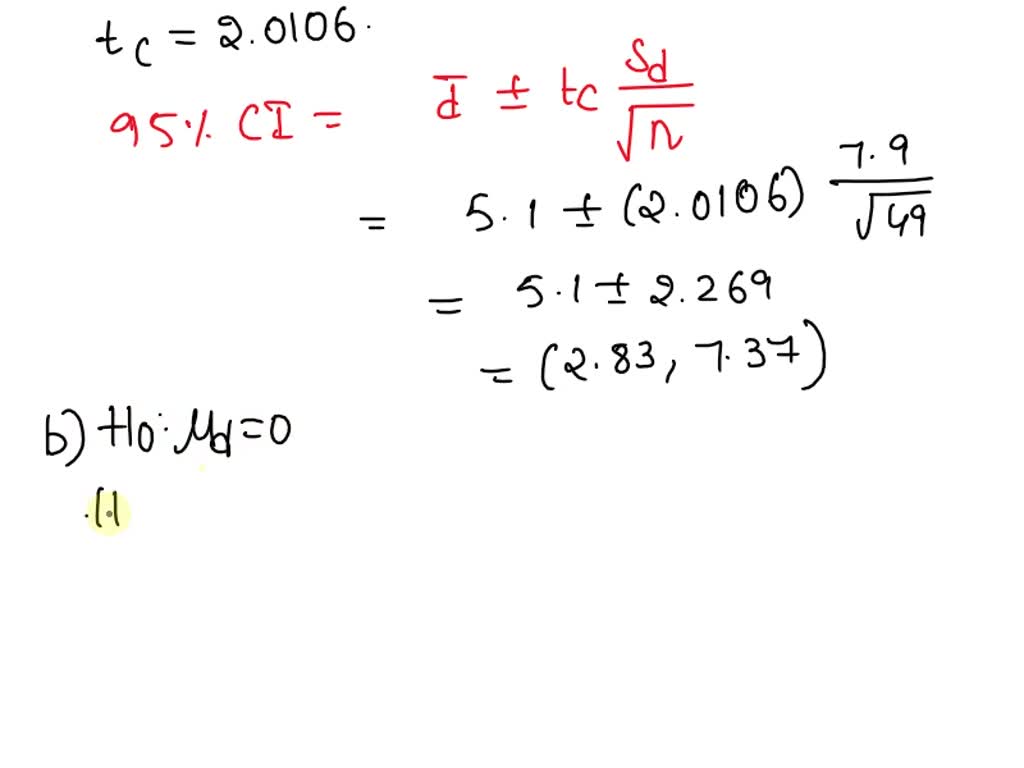 tc = 2.0106.
95% CI = d̄ ± tc Sd/√n
= 5.1 ± (2.0106) 7.9/√49
= 5.1 ± 2.269
= (2.83, 7.37)
b) H0: μd = 0